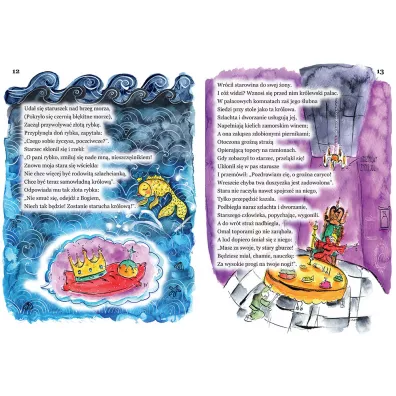 12
Udał się staruszek nad brzeg morza,
(Pokryło się czernią błękitne morze),
Zaczął przywoływać złotą rybkę.
Przypłynęła doń rybka, zapytała:
"Czego sobie życzysz, poczciwcze?"
Starzec skłonił się i rzekł:
"O pani rybko, zmiłuj się nade mną, nieszczęśnikiem!
Znowu moja stara się wścieka:
Nie chce więcej być rodowitą szlachcianką,
Chce być teraz samowładną królową!"
Odpowiada mu tak złota rybka:
"Nie smuć się, odejdź z Bogiem,
Niech tak będzie! Zostanie starucha królową!"
13
Wrócił starowina do swej żony.
I cóż widzi? Wznosi się przed nim królewski pałac.
W pałacowych komnatach zaś jego ślubna
Siedzi przy stole jako ta królowa.
Szlachta i dworzanie usługują jej,
Napełniają kielich zamorskim winem;
A ona zakąsza zdobionymi piernikami;
Otoczona groźną strażą
Opierającą topory na ramionach.
Gdy zobaczył to starzec, przeląkł się!
Ukłonił się w pas przed staruchą
I przemówił: "Pozdrawiam cię, o groźna caryco!
Wreszcie chyba twa duszyczka jest zadowolona".
Stara nie raczyła nawet spojrzeć na niego,
Tylko przepędzić kazała.
Podbiegła naraz szlachta i dworzanie,
Starszego człowieka, popychając, wygonili.
A do wrót straż nadbiegła,
Omal toporami go nie zarąbała.
A lud dopiero śmiał się z niego:
"Masz za swoje, ty stary głupcze!
Będziesz miał, chamie, nauczkę:
Za wysokie progi na twoje nogi!".